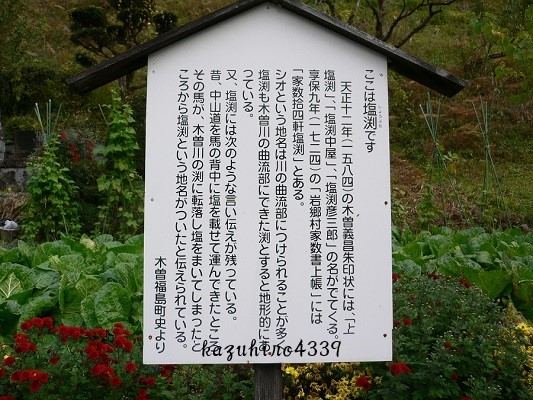 ここは塩渕です
しおぶち
天正十二年(一五八四)の木曽義昌朱印状には、「上
塩渕」、「塩渕中屋」、「塩渕彦三郎」の名がでてくる。
享保九年(一七二四)の「岩郷村家数書上帳」には
「家数拾四軒塩渕」とある。
シオという地名は川の曲流部につけられることが多く
塩渕も木曽川の曲流部にできた渕とすると地形的にあ
っている。
又、塩渕には次のような言い伝えが残っている。
昔、中山道を馬の背中に塩を載せて運んできたところ
その馬が、木曽川の渕に転落し塩をまいてしまったと
ころから塩渕という地名がついたと伝えられている。
木曽福島町史より
kazuhiro4339